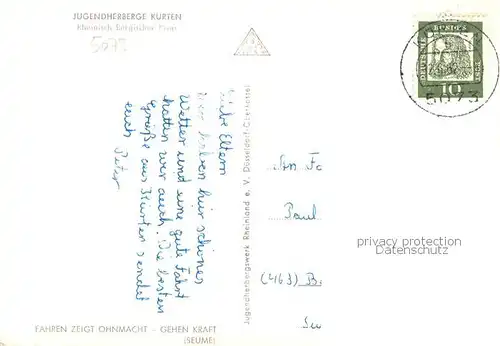 JUGENDHERBERGE KÜRTEN
Rheinisch Bergischer Kreis
5073
DEUTSCHE
BUNDES
POST
10
5073
Liebe Eltern
Wir haben hir schönes
Wetter und eine gute Fahrt
hatten wir auch. Die besten
Grüße aus Kürten sendet
euch Peter
Jugendherbergswerk Rheinland e. V. Düsseldorf-Oberkassel
An Fa
Paul
privacy protection
Datenschutz
(463) B
FAHREN ZEIGT OHNMACHT – GEHEN KRAFT
(SEUME)